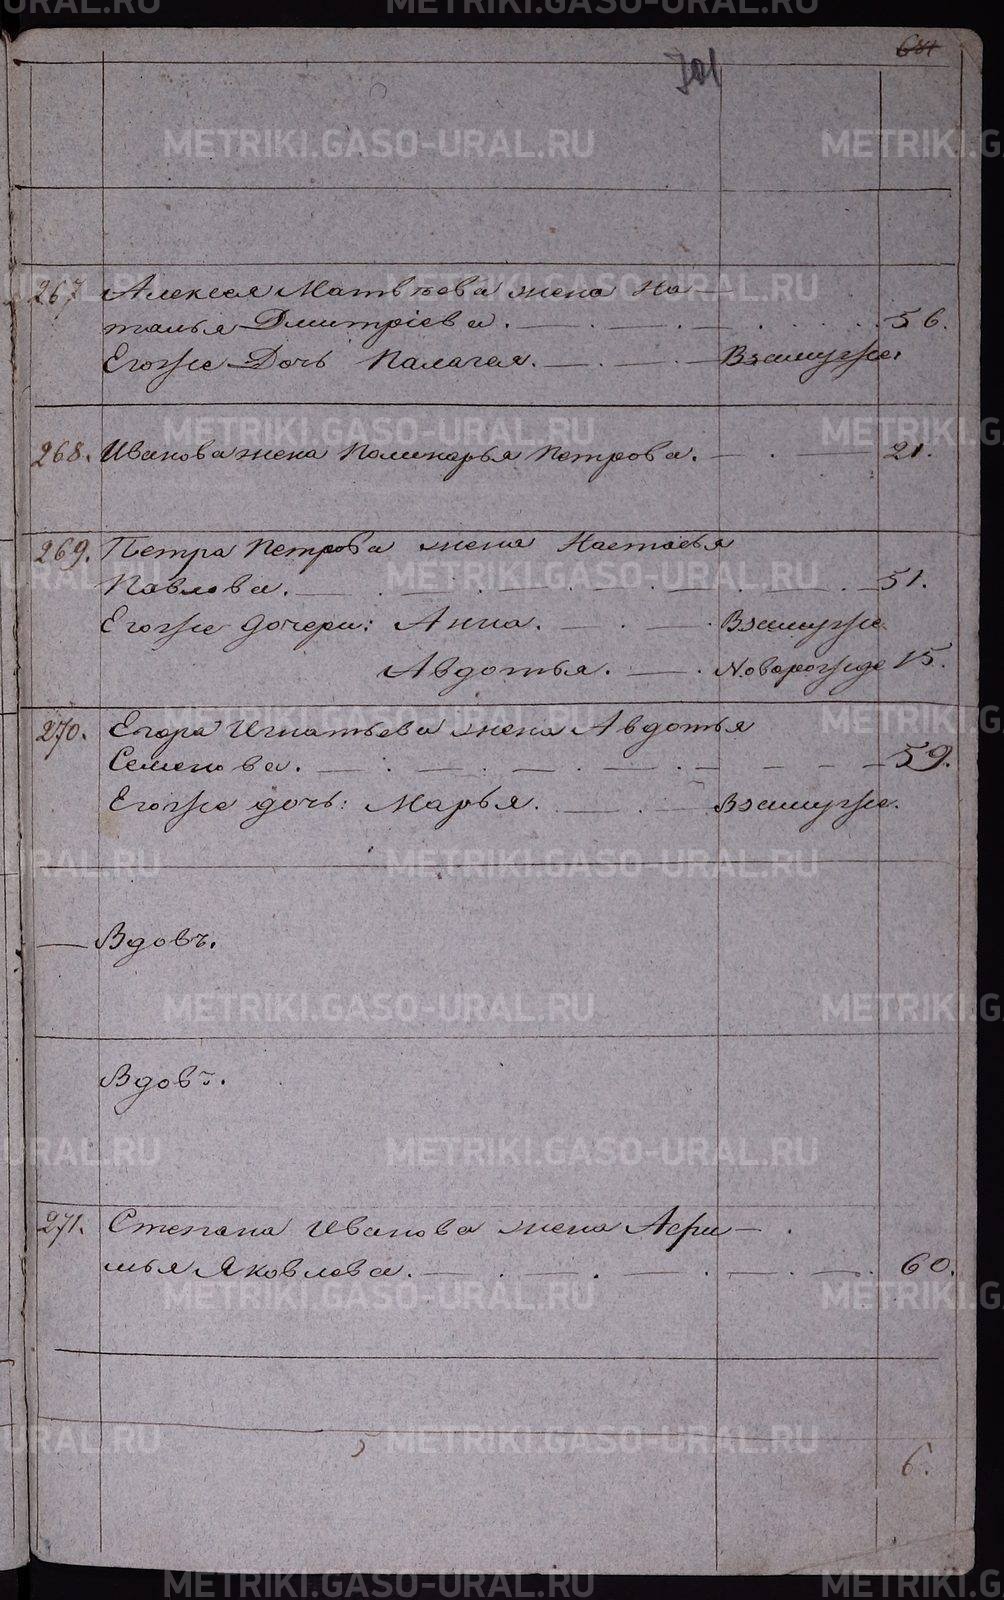 701
267 Алексея Матвѣева жена На
талья Дмитріева. 56.
Егожъ Дочь Палагея. Взамужѣ.
268. Иванова жена Полинарья Петрова. 21.
269. Петра Петрова жена Настасья
Павлова. 51.
Егоже дочери: Анна. Взамужѣ
Авдотья. Новорожде 15.
270. Егора Игнатьева жена Авдотья
Семенова. 59.
Егоже дочь: Марья. Взамужѣ.
Вдовъ.
Вдовъ.
271. Степана Иванова жена Афи
мья Яковлева. 60.
5
6.
METRIKI.GASO-URAL.RU